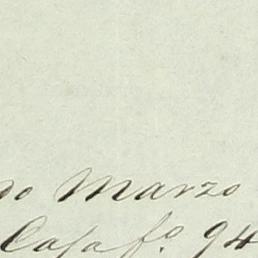 do Marzo
Casa fo. 94